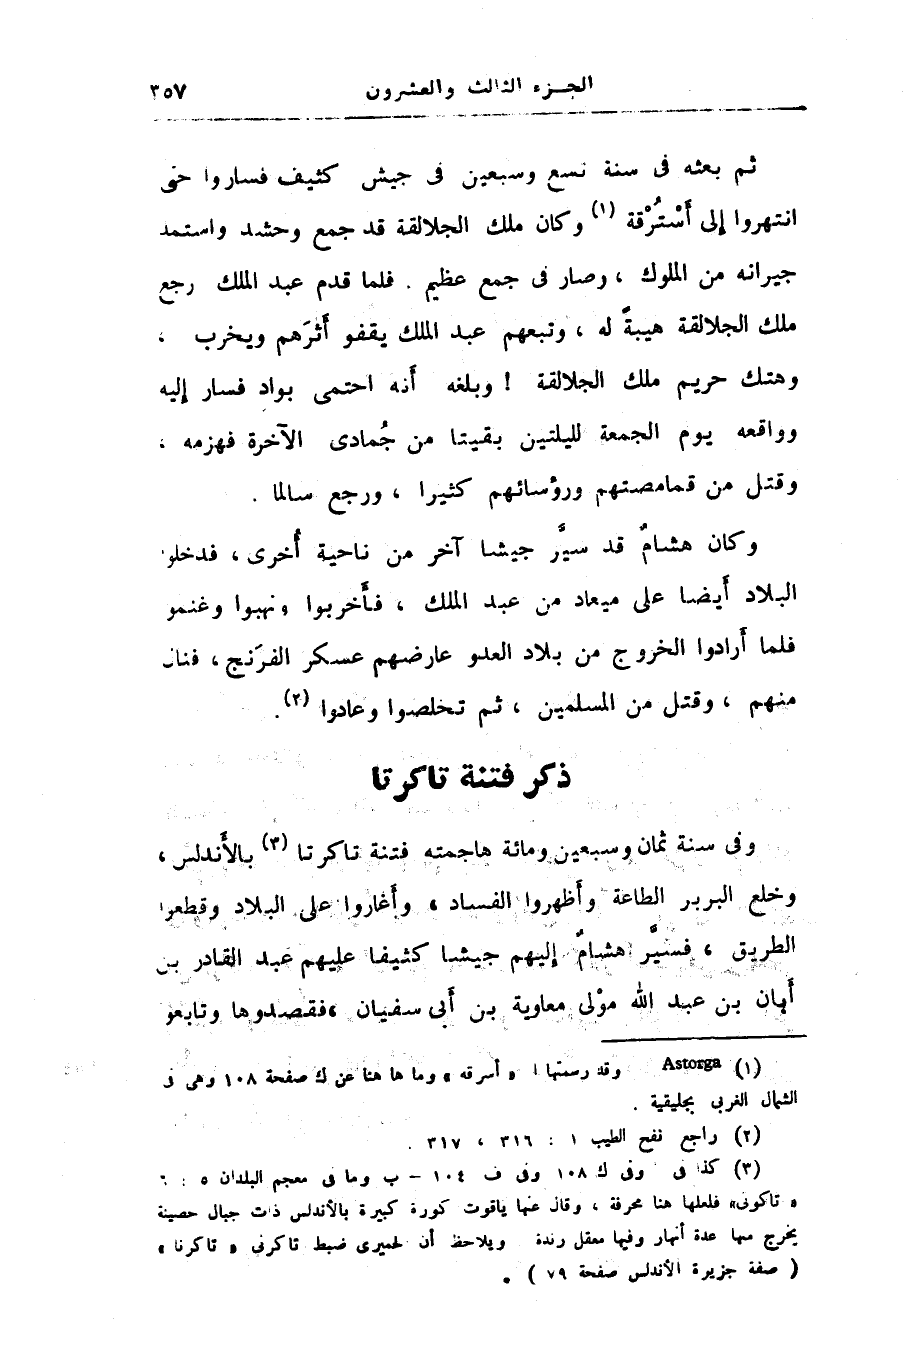 الجزء الثالث والعشرون ٣٥٧
ثم بعثه فى سنة تسع وسبعين فى جيش كثيف فساروا حتى
انتهروا إلى أَسْتُرْقة (١) وكان ملك الجلالقة قد جمع وحشد واستمد
جيرانه من الملوك ، وصار فى جمع عظيم . فلما قدم عبد الملك رجع
ملك الجلالقة هيبةً له ، وتبعهم عبد الملك يقفو أَثرَهم ويخرب ،
وهتك حريم ملك الجلالقة ! وبلغه أَنه احتمى بواد فسار إليه
وواقعه يوم الجمعة لليلتين بقيتا من جُمادى الآخرة فهزمه ،
وقتل من قمامصتهم ورؤسائهم كثيرا ، ورجع سالما .
وكان هشامٌ قد سيَّر جيشا آخر من ناحية أُخرى ، فدخلو
البلاد أَيضا على ميعاد من عبد الملك ، فأَخربوا ونهبوا وغنمو
فلما أَرادوا الخروج من بلاد العدو عارضهم عسكر الفرَنج ، فنال
منهم ، وقتل من المسلمين ، ثم تخلصوا وعادوا (٢) .
ذكر فتنة تاكرتا
وفى سنة ثمان وسبعين ومائة هاجمته فتنة تاكرتا (٣) بالأَندلس ،
وخلع البربر الطاعة وأَظهروا الفساد ، وأَغاروا على البلاد وقطعوا
الطريق ، فسيَّر هشامٌ إليهم جيشا كثيفا عليهم عبد القادر بن
أَبان بن عبد الله موْلى معاوية بن أَبى سفيان ، فقصدوها وتابعو
(١) Astorga وقد رسمتها ا « أسرقه » وما ها هنا عن ك صفحة ١٠٨ وهى فى
الشمال الغربى بجليقية .
(٢) راجع نفح الطيب ١ : ٣١٦ ، ٣١٧ .
(٣) كذا فى وفى ك ١٠٨ وفى ف ١٠٤ - ب وما فى معجم البلدان ٥ : ٦
« تاكونى» فلعلها هنا محرفة ، وقال عنها ياقوت كورة كبيرة بالأندلس ذات جبال حصينة
يخرج منها عدة أنهار وفيها معقل رندة ويلاحظ أن لحميرى ضبط تاكرنى « تاكرنا »
( صفة جزيرة الأندلس صفحة ٧٩ ) .